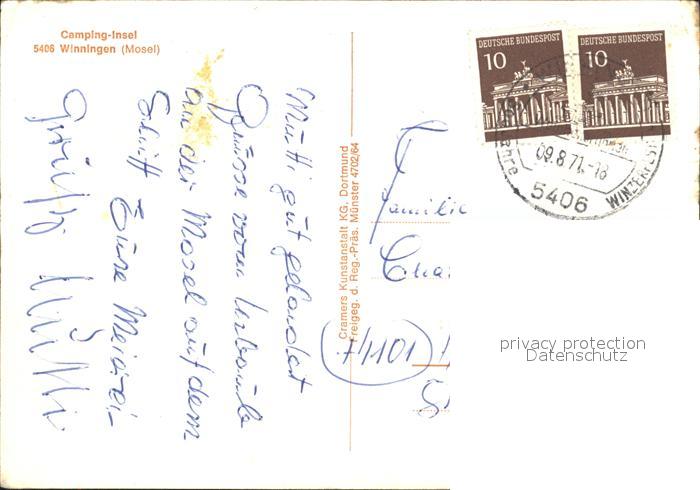 Camping-Insel
5406 Winningen (Mosel)
Mutti gut gelandet
Grüsse vom Urlaub
an der Mosel auf dem
Schiff
Eure
Grüßli
Cramers Kunstanstalt KG, Dortmund
Freigeg. d. Reg.-Präs. Münster 4702/64
DEUTSCHE BUNDESPOST
10
DEUTSCHE BUNDESPOST
10
09.8.71.-18
5406
WINZERFEST
Familie
privacy protection
Datenschutz